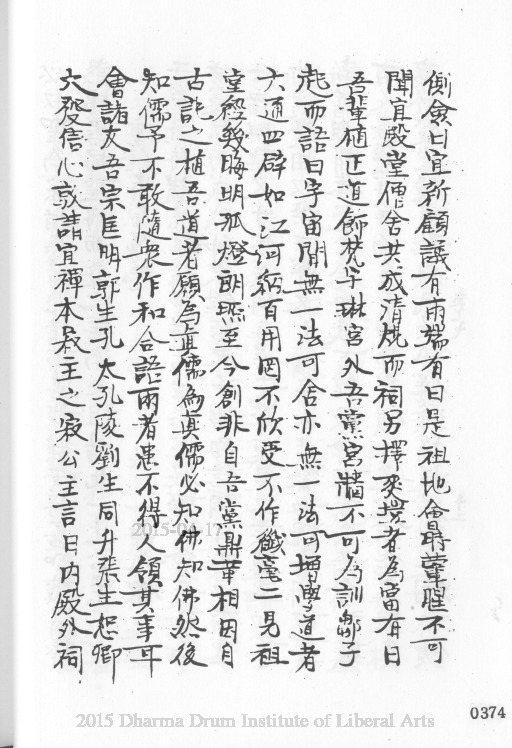 側僉曰宜新顧議有兩端有曰是祖地會時葷腥不可
聞宜殿堂僧舍共成清規而祠另擇爽塏者為當有曰
吾輩植正道飾梵宇琳宮外吾黨宮牆不可為訓鄒子
起而語曰宇宙間無一法可舍亦無一法可增學道者
六通四辟如江河納百用罔不欣受不作纖毫二見祖
堂經幾晦明孤燈朗照至今創非自吾黨鼎革相因自
古記之植吾道者願為真儒為真儒必知佛知佛然後
知儒予不敢隨衆作和合語兩者患不得人領其事耳
會諸友吾宗匡明郭生孔太孔陵劉生同升張生恕卿
大發信心敦請宜禪本叔主之寂公主言曰內殿外祠
2015-04-17
0374
2015 Dharma Drum Institute of Liberal Arts